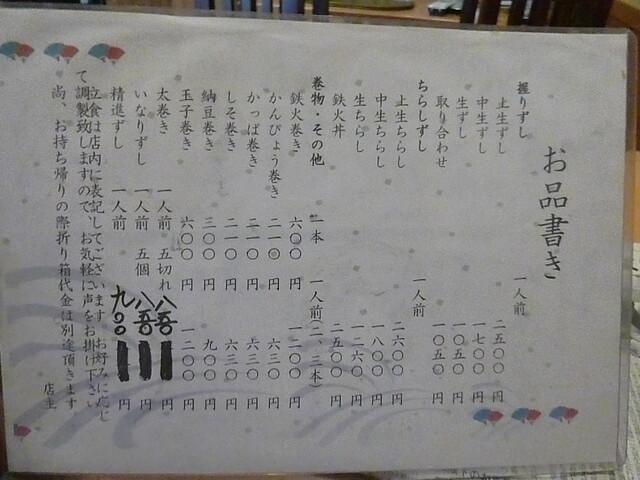 お品書き
握りずし 一人前
上生ずし 二五〇〇円
中生ずし 一七〇〇円
生ずし 一〇五〇円
取り合わせ 一〇五〇円
ちらしずし 一人前
上生ちらし 二六〇〇円
中生ちらし 一八〇〇円
生ちらし 一二六〇円
鉄火丼 二五〇〇円
巻物・その他 一本 一人前(二、三本)
鉄火巻き 六〇〇円 一二〇〇円
かんぴょう巻き 二一〇円 六三〇円
かっぱ巻き 二一〇円 六三〇円
しそ巻き 二一〇円 六三〇円
納豆巻き 三〇〇円 九〇〇円
玉子巻き 六〇〇円 一二〇〇円
太巻き 一人前 五切れ 八五〇円
いなりずし 一人前 五個 八五〇円
精進ずし 一人前 九〇〇円
立食は店内に表記してございます お好みに応じ
て調製致しますので、お気軽に声をお掛け下さい
尚、お持ち帰りの際折り箱代金は別途頂きます
店主